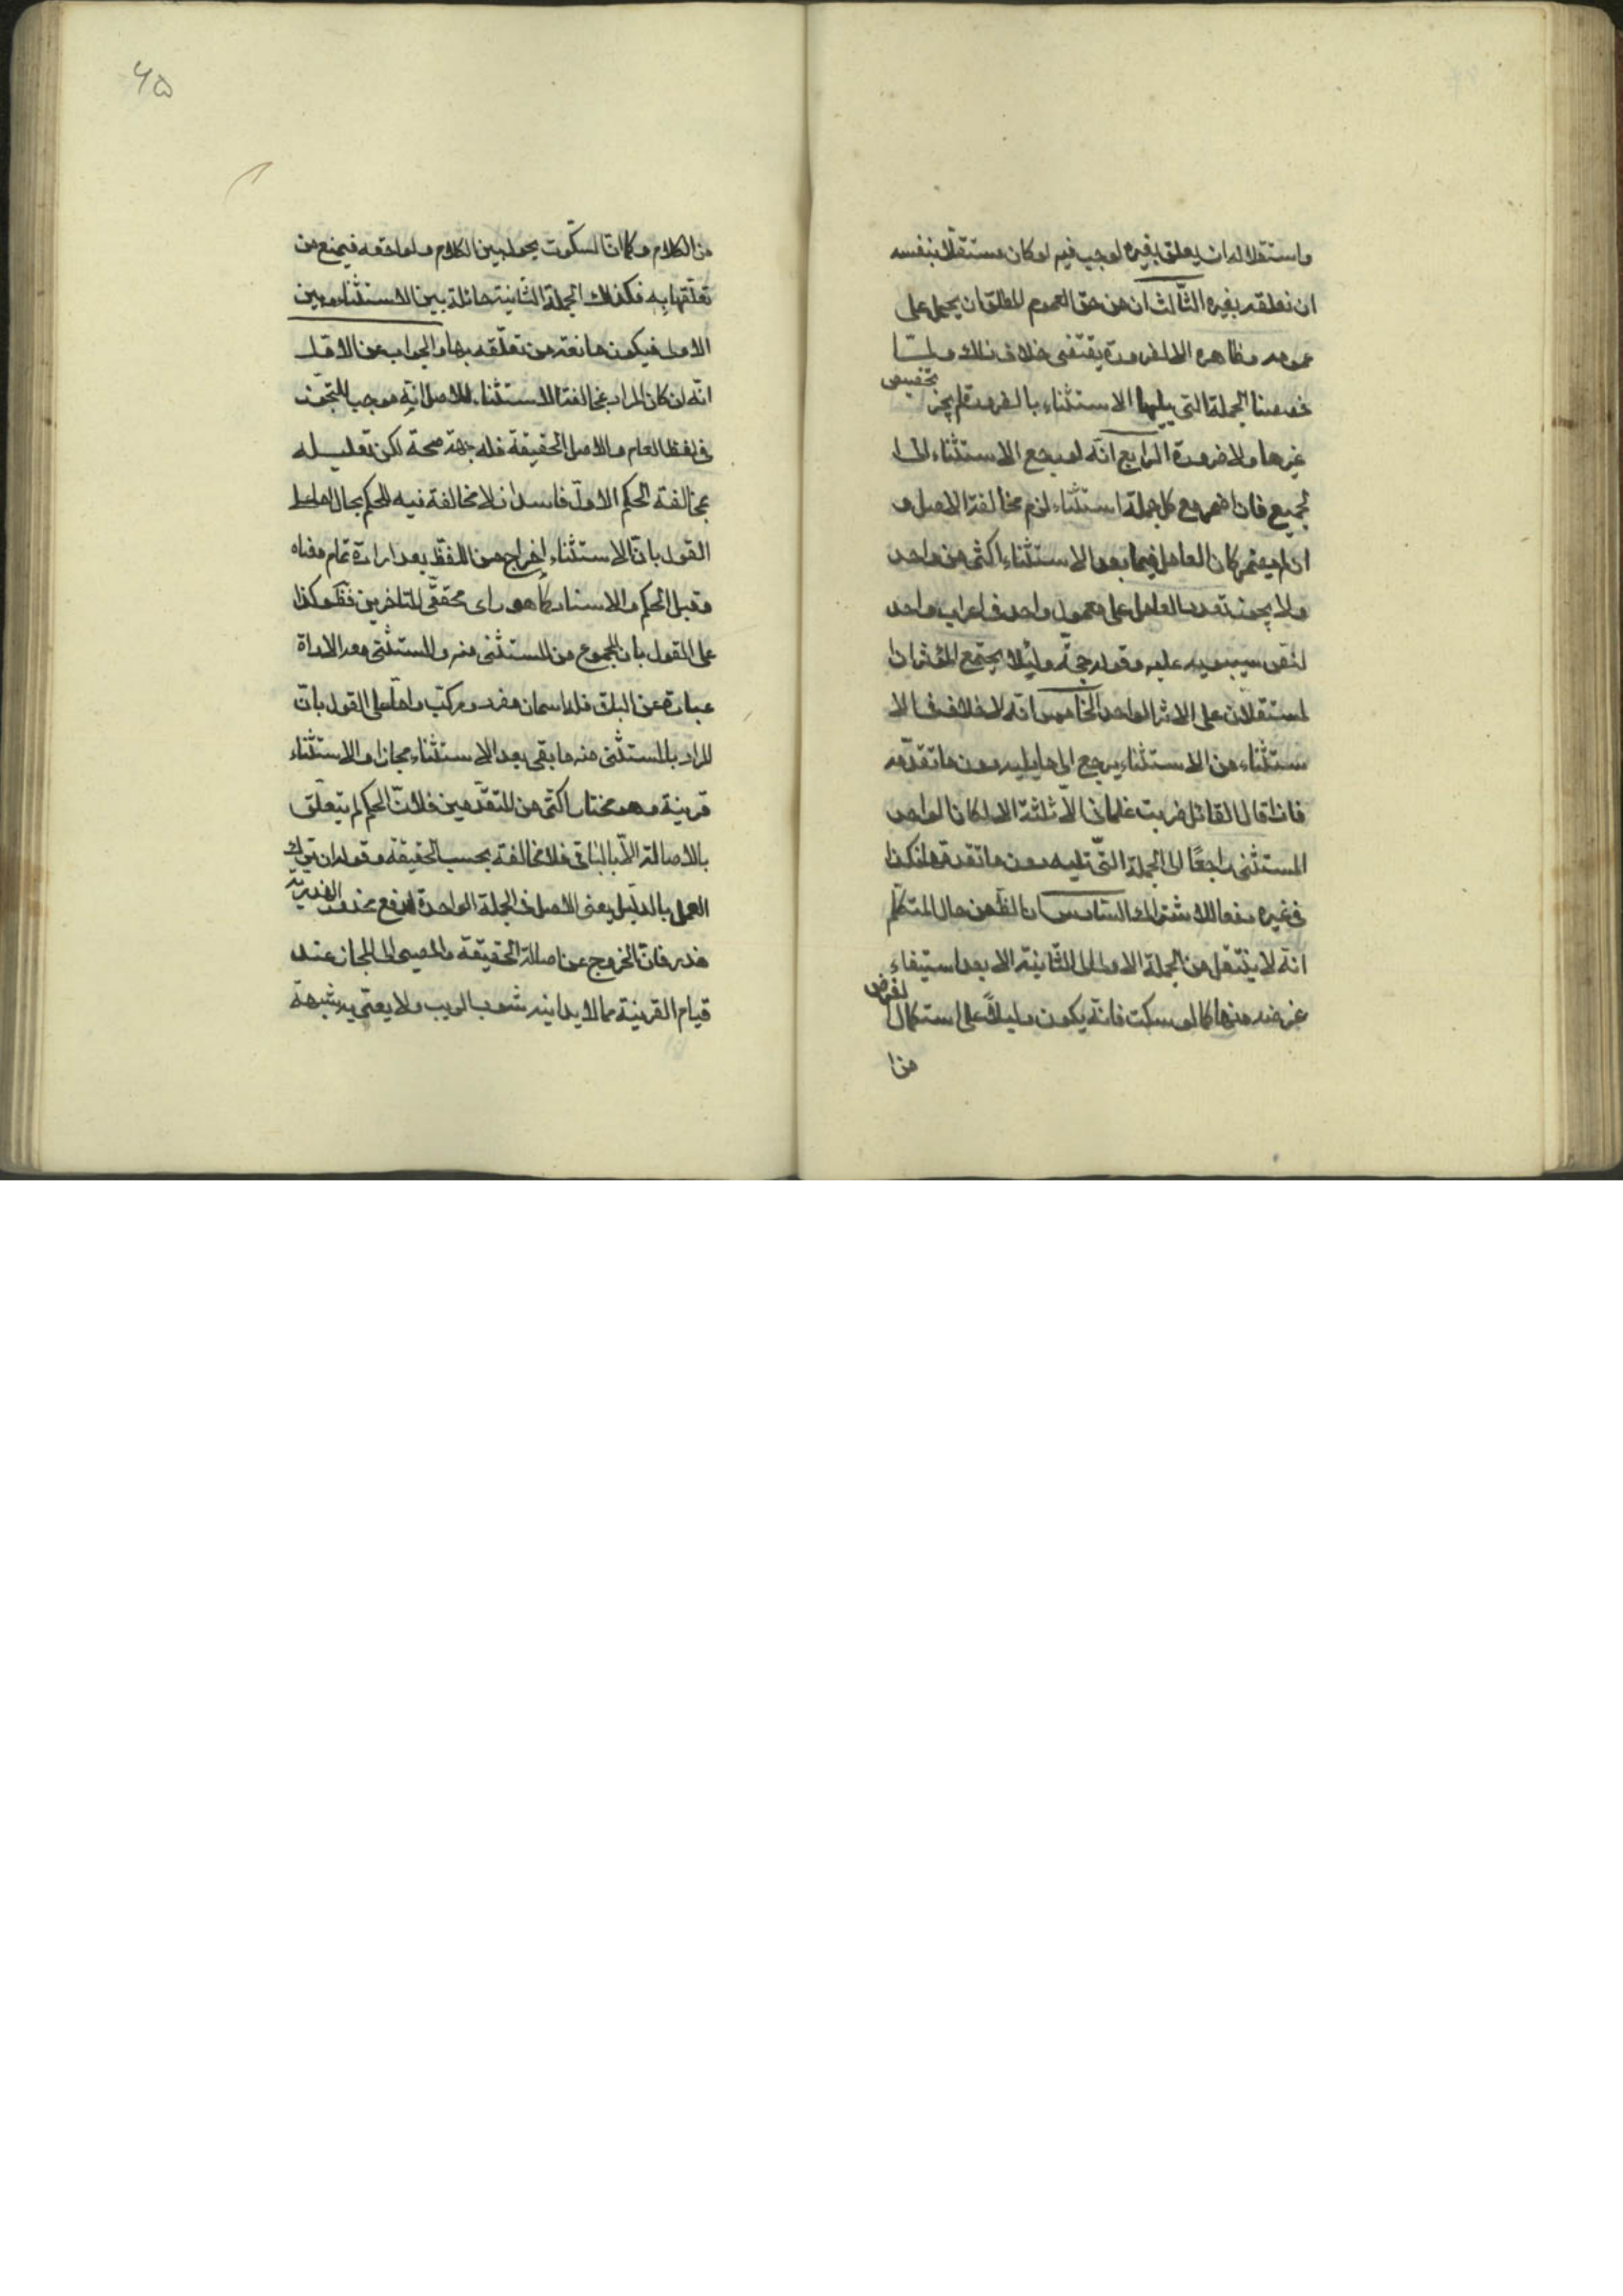 واستقلاله ان يعلق بغيره لوجب فيم لو كان مستقلا بنفسه
ان نعلقه بغيره الثالث ان من حق العموم المطلق ان يحمل على
عمومه وظاهره الا لضرورة يقتضى خلاف ذلك ولما
خصصنا الجملة التى يليها الاستثناء بالضرورة لم يجز تخصيص
غيرها ولا ضرورة الرابع انه لو رجع الاستثناء الى ا
لجميع فان اضمر مع كل جملة استثناء لزم مخالفة الاصل و
ان لم يضمر كان العامل فيما بعد الاستثناء اكثر من واحد
ولا يجوز تعدد العامل على معمول واحد فى اعراب واحد
لنص سيبويه عليه وقوله حجة ولئلا يجتمع المؤثران ا
لمستقلان على الاثر الواحد الخامس انه لا خلاف فى الا
ستثناء من الاستثناء يرجع الى ما يليه دون ما تقدمه
فاذا قال القائل ضربت غلمانى الا ثلثة الا واحدا كان الواحد
المستثنى راجعًا الى الجملة التى تليه دون ما تقدمها فكذا
فى غيره دفعا للاشتراك السادس ان الظ من حال المتكلم
انه لا ينتقل من الجملة الاولى الى الثانية الا بعد استيفاء
غرضه منها كما لو سكت فانه يكون دليلًا على استكمال الغرض
من ا
۶۵
من الكلام وكما ان السكوت يحول بين الكلام ولواحقه فيمنع من
تعلقها به فكذلك الجملة الثانية حائلة بين الاستثناء وبين
الاولى فيكون مانعة من تعلقه بها والجواب عن الاول
انه ان كان المراد بمخالفة الاستثناء للاصل انه موجب للتجوز
فى لفظ العام والاصل الحقيقة فله جهة صحة لكن تعليله
بمخالفة الحكم الاول فاسد اذ لا مخالفة فيه للحكم بحال اما على
القول بان الاستثناء اخراج من اللفظ بعد ارادة تمام معناه
وقبل الحكم والاسناد كما هو راى محققى المتاخرين فظ وكذا
على القول بان المجموع من المستثنى منه والمستثنى مع الاداة
عبارة عن الباق فله اسمان مفرد ومركب واما على القول بان
المراد بالمستثنى منه ما بقى بعد الاستثناء مجازا والاستثناء
قرينة وهو مختار اكثر من المتقدمين فلان الحكم لم يتعلق
بالاصالة الا بالباقى فلا مخالفة بحسب الحقيقة وقوله ان ترك
العمل بالدليل يعنى الاصل فى الجملة الواحدة لدفع محذور الهذرية
هذر فان الخروج عن اصالة الحقيقة والمصير الى المجاز عند
قيام القرينة مما لا يدانيه شوب الريب ولا يعتريه شبهة